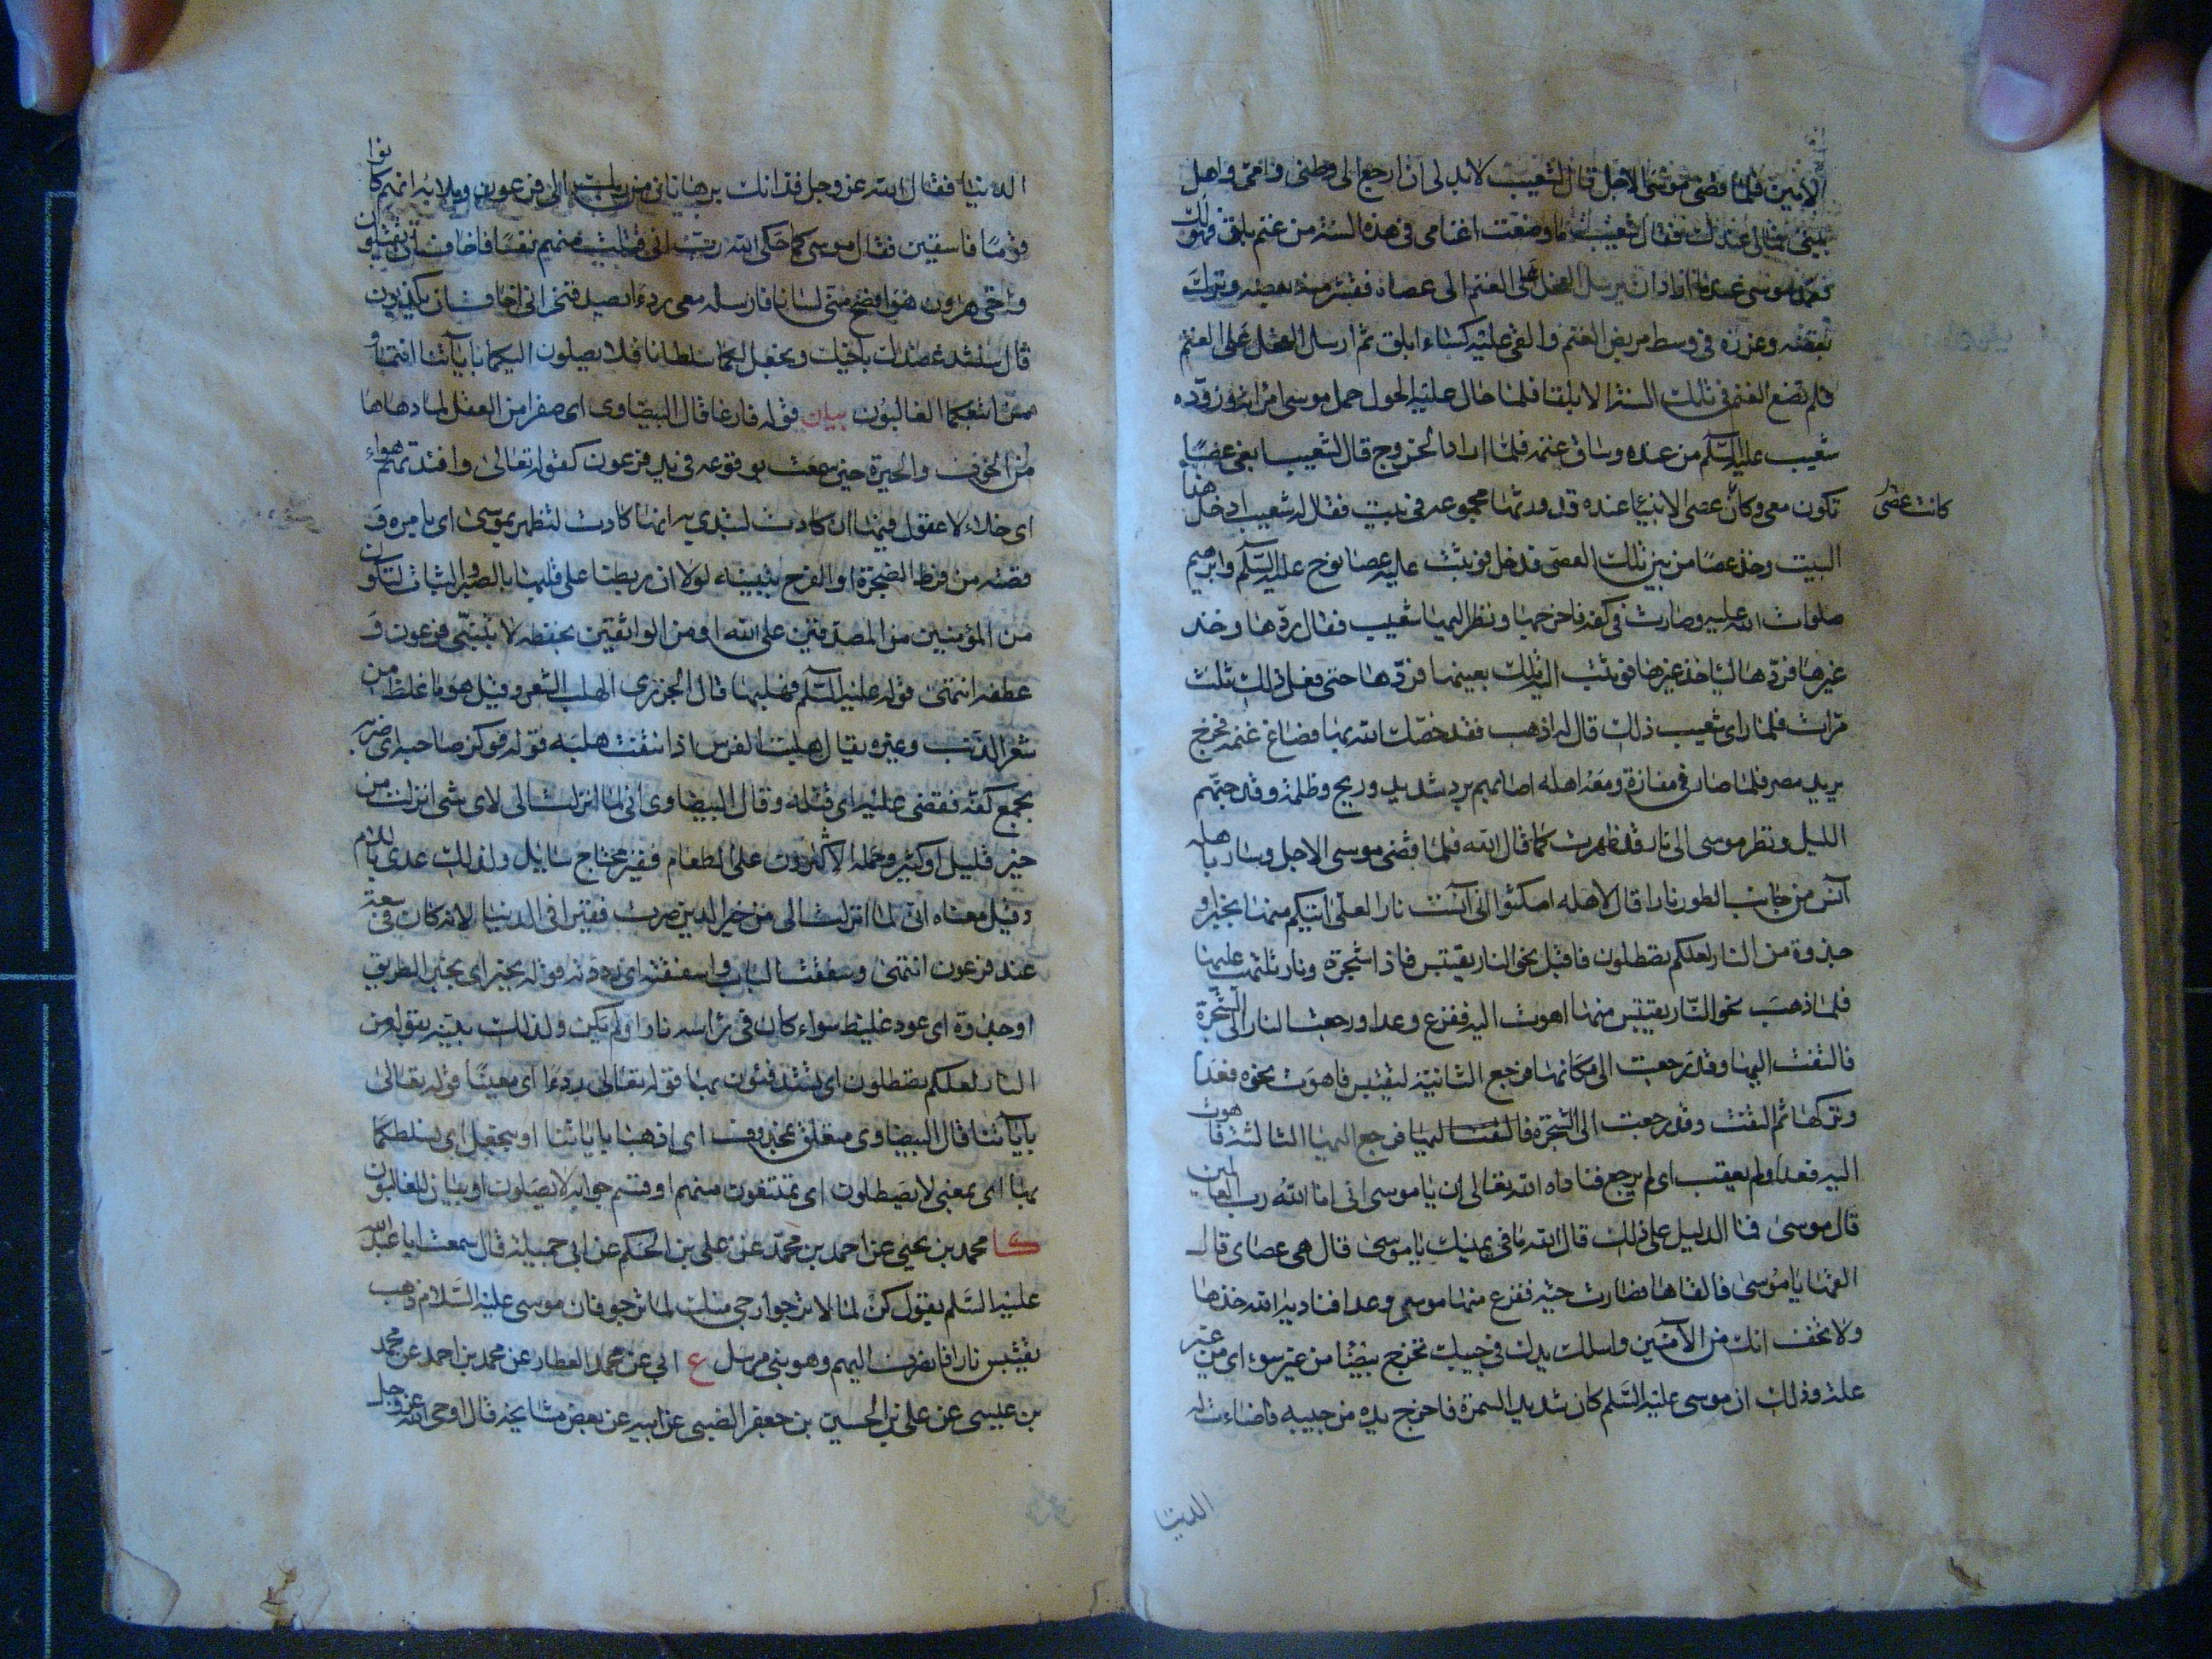 الامين فلما قضى موسى الاجل قال لشعيب لا بد لى ان ارجع الى وطنى وامى واهل
بيتى فمالى عندك فقال شعيب ما وضعت اغنامى فى هذه السنة من غنم بلق فهو لك
فعمد موسى عند ما اراد ان يرسل الفحل على الغنم الى عصاه فقشر منه بعضه وترك
بعضه وغرزه فى وسط مربض الغنم والقى عليه كساء ابلق ثم ارسل الفحل على الغنم
فلم تضع الغنم فى تلك السنة الا بلقا فلما حال عليه الحول حمل موسى امراته وزوده
شعيب عليه السلم من عنده وساق غنمه فلما اراد الخروج قال لشعيب ابغى عصا
تكون معى وكان عصى الانبياء عنده قد ورثها مجموعه فى بيت فقال له شعيب ادخل هذا
كانت عصى
البيت وخذ عصا من بين تلك العصى فدخل فوثبت عليه عصا نوح عليه السلم وابرهيم
صلوات الله عليه وصارت فى كفه فاخرجها ونظر اليها شعيب فقال ردها وخذ
غيرها فردها لياخذ غيرها فوثبت اليه تلك بعينها فردها حتى فعل ذلك ثلث
مرات فلما راى شعيب ذلك قال له اذهب فقد خصك الله بها فساغ غنمه فخرج
يريد مصر فلما صار فى مفازة ومعه اهله اصابهم برد شديد وريح وظلمة وقد جنهم
الليل ونظر موسى الى نار قد ظهرت كما قال الله فلما قضى موسى الاجل وسار باهله
آنس من جانب الطور نارا قال لاهله امكثوا انى آنست نارا لعلى اتيكم منها بخبر او
جذوة من النار لعلكم تصطلون فاقبل نحو النار يقتبس فاذا شجرة ونار تلتهب عليها
فلما ذهب نحو النار يقتبس منها اهوت اليه ففزع وعدا ورجعت النار الى الشجرة
فالتفت اليها وقد رجعت الى مكانها فرجع الثانية ليقتبس فاهوت نحوه فعدا
وتركها ثم التفت وقد رجعت الى الشجرة فالتفت اليها فرجع اليها الثالثة فاهوت
اليه فعدا ولم يعقب اى لم يرجع فناداه الله تعالى ان يا موسى انى انا الله رب العالمين
قال موسى فما الدليل على ذلك قال الله ما فى يمينك يا موسى قال هى عصاى قال
القها يا موسى فالقاها فصارت حية ففزع منها موسى وعدا فناديه الله خذها
ولا تخف انك من الآمنين واسلك يدك فى جيبك تخرج بيضا من غير سوء اى من غير
علة وذلك ان موسى عليه السلم كان شديد السمرة فاخرج يده من جيبه فاضاءت له
الدنيا
الدنيا فقال الله عز وجل فذانك برهانان من ربك الى فرعون وملايه انهم كانوا
قوما فاسقين فقال موسى كما حكى الله رب انى قتلت منهم نفسا فاخاف ان يقتلون
واخى هرون هو افصح منى لسانا فارسله معى ردءا يصدقنى انى اخاف ان يكذبون
قال سنشد عضدك باخيك ونجعل لكما سلطانا فلا يصلون اليكما بآياتنا انتما و
من اتبعكما الغالبون بيان قوله فارغا قال البيضاوى اى صفرا من العقل لما دهاها
من الخوف والحيرة حين سمعت بوقوعه فى يد فرعون كقوله تعالى وافئدتهم هواء
اى خلاء لا عقول فيها ان كادت لتبدى به انها كادت لتظهر بموسى اى بامره و
قصته من فرط الضجرة او الفرح بتبنيه لولا ان ربطنا على قلبها بالصبر والثبات لتكون
من المؤمنين من المصدقين على الله او من الواثقين بحفظه لا بتبنى فرعون و
عطفه انتهى قوله عليه السلم فهلبها قال الجزرى الهلب الشعر وقيل هو ما غلظ من
شعر الذنب وغيره يقال هلبت الفرس اذا نتفت هلبه قوله فوكز صاحبه اى ضربه
بجمع كفه فقضى عليه اى قتله وقال البيضاوى انى لما انزلت الى لاى شى انزلت من
خير قليل او كثير وحمله الاكثرون على الطعام فقير محتاج سايل ولذلك عدى باللام
وقيل معناه انى لما انزلت الى من خير الدين صرت فقيرا فى الدنيا لانه كان فى سعة
عند فرعون انتهى وسفقت الباب واسفقته اى رددته قوله بخبر اى بخبر الطريق
او جذوة اى عود غليظ سواء كان فى راسه نار او لم يكن ولذلك بينه بقوله من
النار لعلكم تصطلون اى تستدفئون بها قوله تعالى ردءا اى معينا قوله تعالى
بآياتنا قال البيضاوى متعلق بمحذوف اى اذهبا باياتنا او بنجعل اى نسلطكما
بها اى بمعنى لا يصطلون اى تمتنعون منهم او قسم جوابه لا يصلون او بيان للغالبون
كا محمد بن يحيى عن احمد بن محمد عن على بن الحكم عن ابى جميلة قال سمعت ابا عبد الله
عليه السلم يقول كن لما لا ترجو ارجى منك لما ترجو فان موسى عليه السلام ذهب
يقتبس نارا فانصرف اليهم وهو نبى مرسل ع ابي عن محمد العطار عن محمد بن احمد عن محمد
بن عيسى عن على بن الحسين بن جعفر الضبى عن ابيه عن بعض مشايخه قال اوحى الله عز وجل